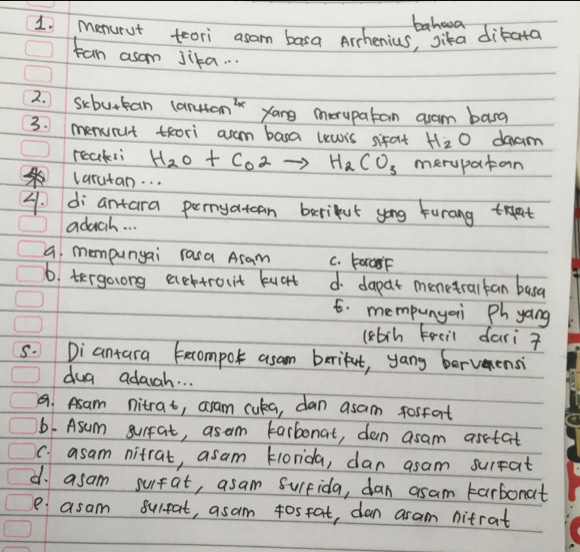 1. menurut teori asam basa Arrhenius, bahwa jika dikata
kan asam jika...
2. Sebutkan larutan²x yang merupakan asam basa
3. menurut teori asam basa lewis sifat H2O dalam
reaksi H2O + CO2 → H2CO3 merupakan
larutan...
4. di antara pernyataan berikut yang kurang tepat
adalah...
a. mempunyai rasa Asam
c. korosif
b. tergolong elektrolit kuat
d. dapat menetralkan basa
E. mempunyai Ph yang
lebih kecil dari 7
5. Di antara kelompok asam berikut, yang bervalensi
dua adalah...
a. Asam nitrat, asam cuka, dan asam fosfat
b. Asam sulfat, asam karbonat, dan asam asetat
c. asam nitrat, asam klorida, dan asam sulfat
d. asam sulfat, asam sulfida, dan asam karbonat
e. asam sulfat, asam fosfat, dan asam nitrat